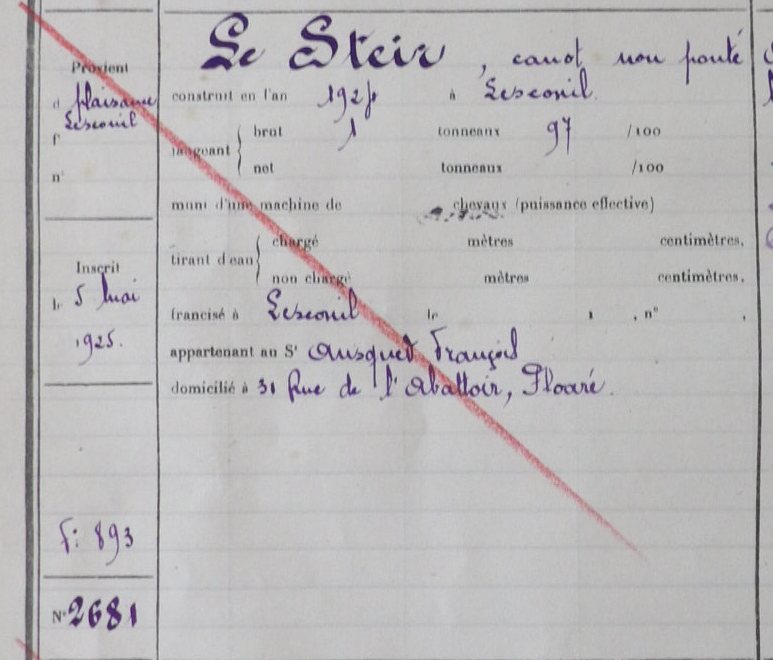 Le Steir, canot non ponté
Provient
d plaisance
Lesconil
f°
n°
construit en l'an 192 à Lesconil.
jaugeant { brut 1 tonneaux 97 /100
net tonneaux /100
muni d'une machine de chevaux (puissance effective)
tirant d'eau { chargé mètres centimètres,
non chargé mètres centimètres,
Inscrit
le 5 Mai
1925.
francisé à Lesconil le , n° ,
appartenant au Sr Ausquer François
domicilié à 31 Rue de l'Abattoir, Ploaré.
f: 893
N° 2681